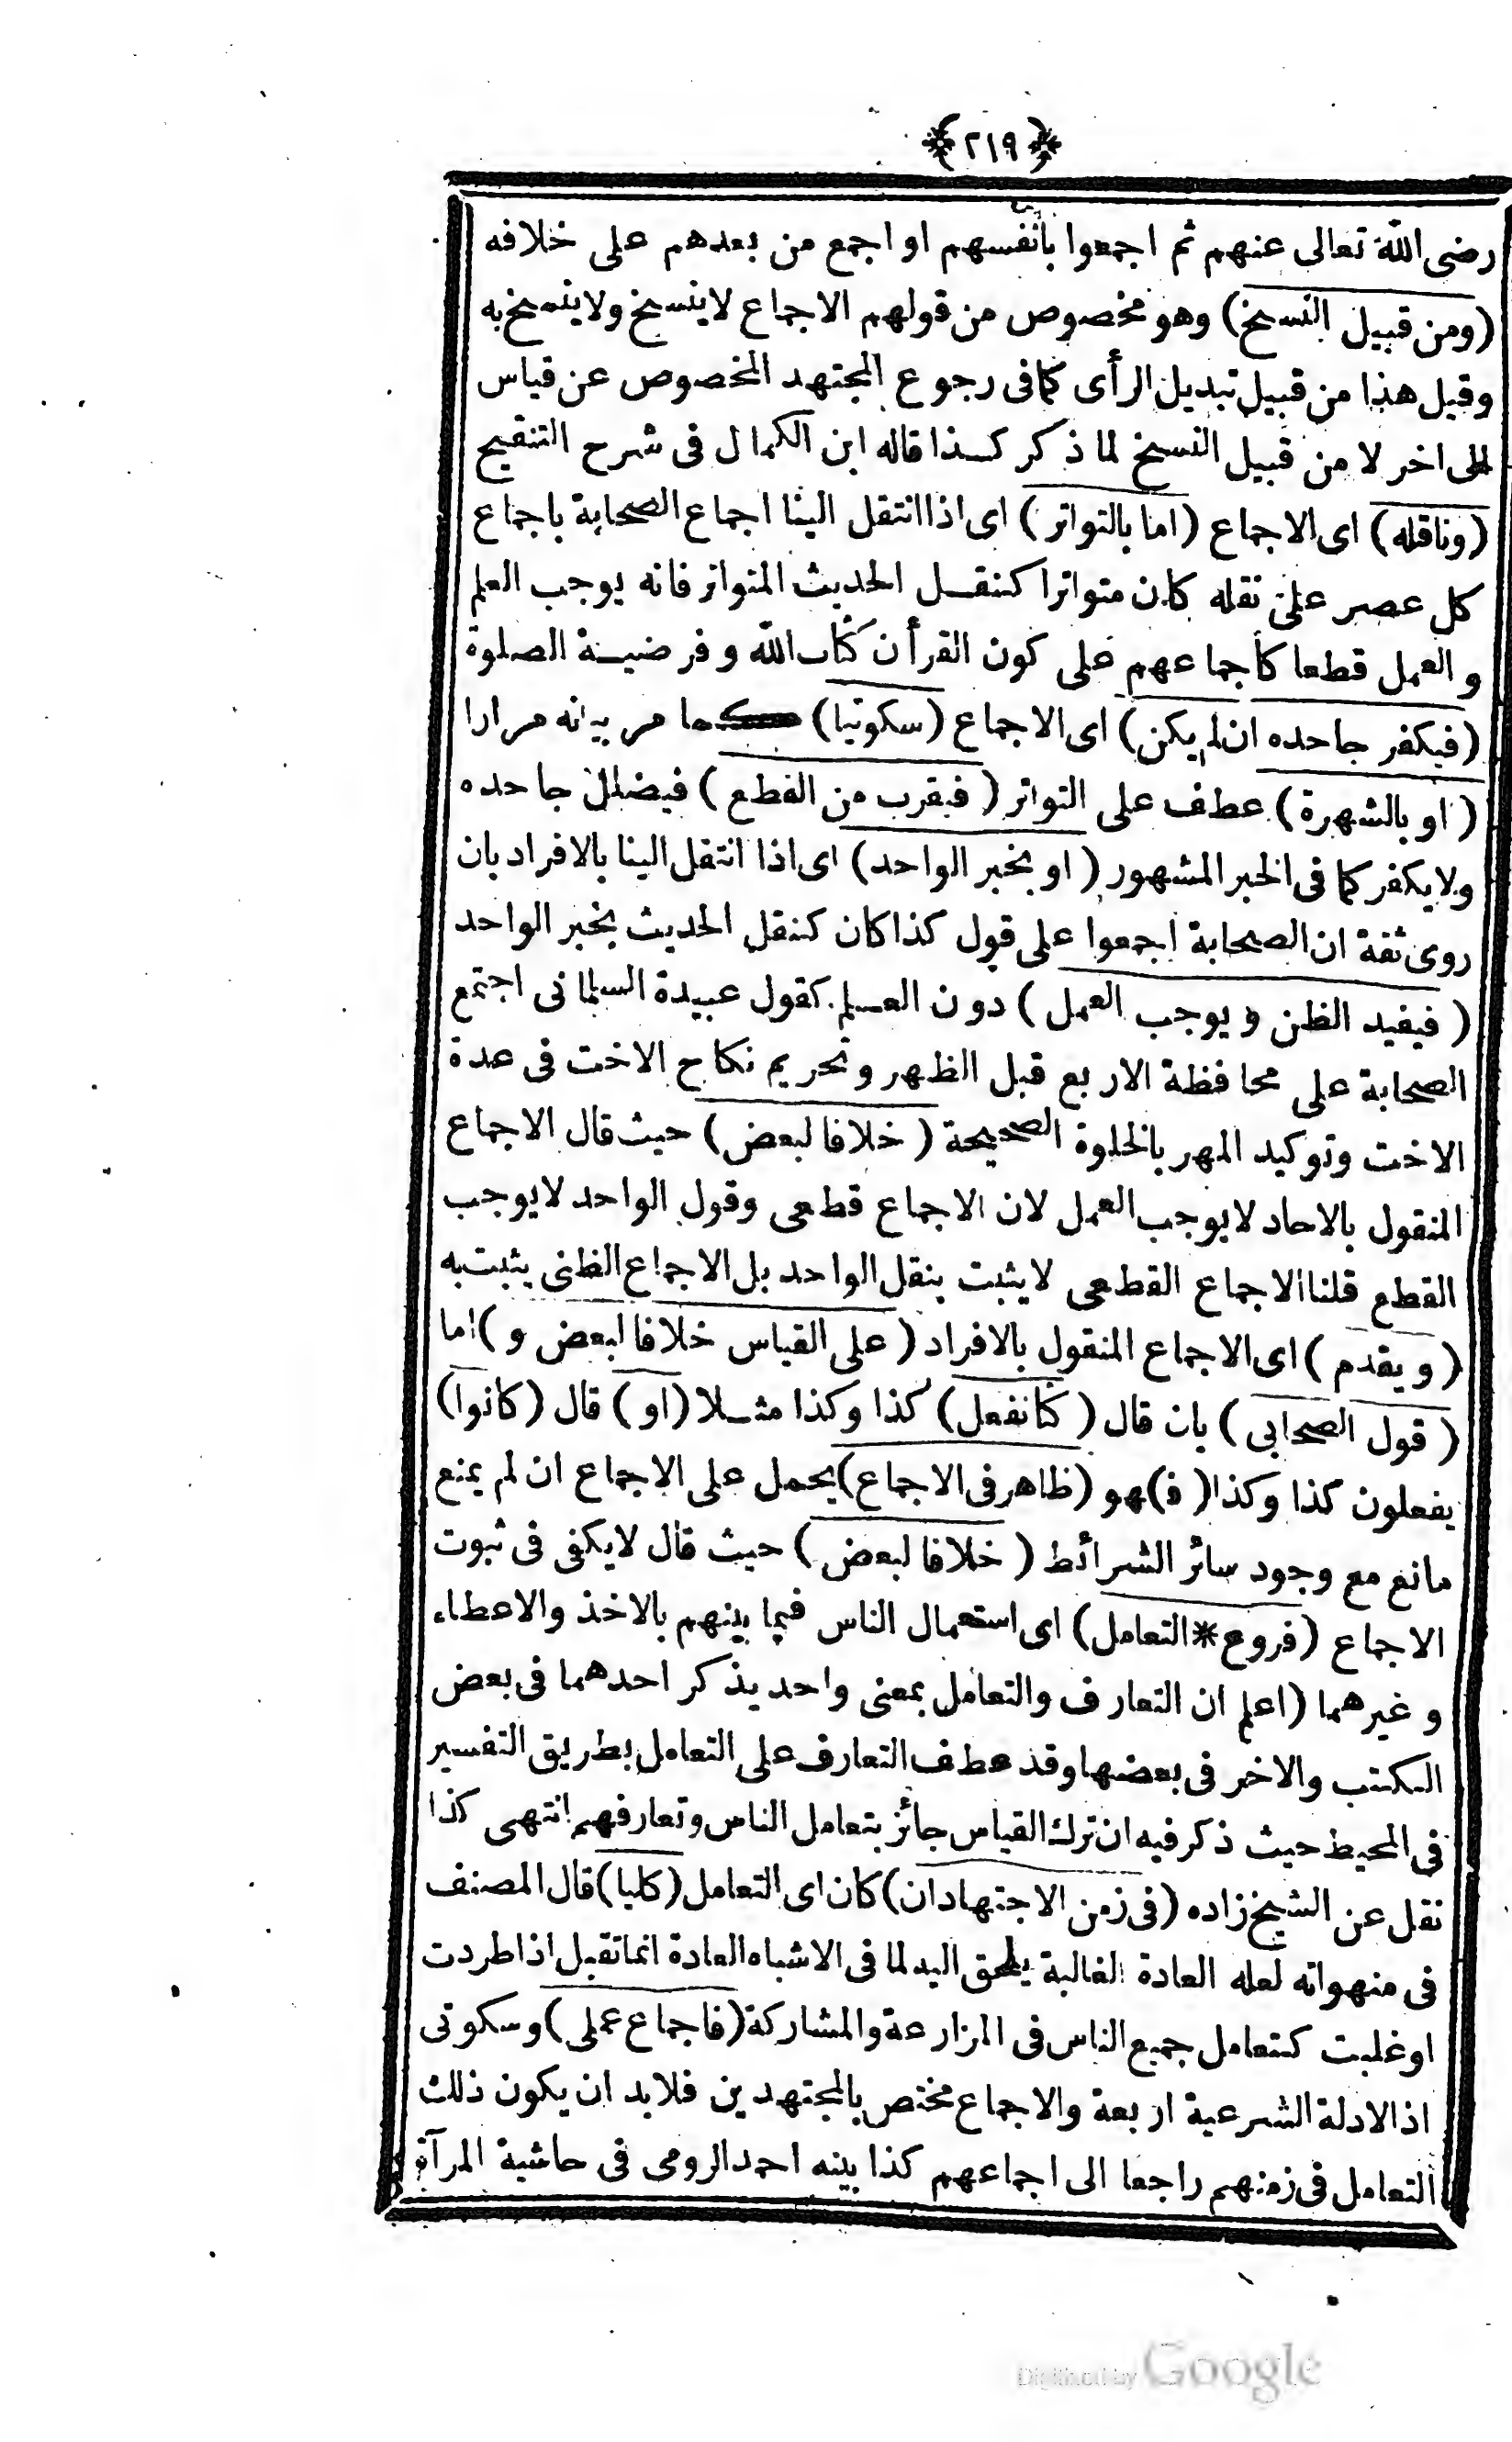 ﴿٢١٩﴾
رضى الله تعالى عنهم ثم اجمعوا بانفسهم او اجمع من بعدهم على خلافه
(ومن قبيل النسخ) وهو مخصوص من قولهم الاجماع لاينسخ ولاينسخ به
وقيل هذا من قبيل تبديل الرأى كمافى رجوع المجتهد المخصوص عن قياس
الى اخر لا من قبيل النسخ لما ذكر كذا قاله ابن الكمال فى شرح التنقيح
(وناقله) اى الاجماع (اما بالتواتر) اى اذا انتقل الينا اجماع الصحابة باجماع
كل عصر على نقله كان متواترا كنقل الحديث المتواتر فانه يوجب العلم
و العمل قطعا كاجماعهم على كون القرأن كتاب الله و فرضية الصلوة
(فيكفر جاحده ان لم يكن) اى الاجماع (سكوتيا) كما مر بيانه مرارا
(او بالشهرة) عطف على التواتر (فيقرب من القطع) فيضلل جاحده
ولايكفر كما فى الخبر المشهور (او بخبر الواحد) اى اذا انتقل الينا بالافراد بان
روى ثقة ان الصحابة اجمعوا على قول كذا كان كنقل الحديث بخبر الواحد
(فيفيد الظن و يوجب العمل) دون العلم كقول عبيدة السلمانى اجتمع
الصحابة على محافظة الاربع قبل الظهر وتحريم نكاح الاخت فى عدة
الاخت وتوكيد المهر بالخلوة الصحيحة (خلافا لبعض) حيث قال الاجماع
المنقول بالاحاد لايوجب العمل لان الاجماع قطعى وقول الواحد لايوجب
القطع قلنا الاجماع القطعى لايثبت بنقل الواحد بل الاجماع الظنى يثبت به
(و يقدم) اى الاجماع المنقول بالافراد (على القياس خلافا لبعض و) اما
(قول الصحابى) بان قال (كنا نفعل) كذا وكذا مثلا (او) قال (كانوا)
يفعلون كذا وكذا (ف)هو (ظاهر فى الاجماع) يحمل على الاجماع ان لم يمنع
مانع مع وجود سائر الشرائط (خلافا لبعض) حيث قال لايكفى فى ثبوت
الاجماع (فروع * التعامل) اى استعمال الناس فيما بينهم بالاخذ والاعطاء
و غيرهما (اعلم ان التعارف والتعامل بمعنى واحد يذكر احدهما فى بعض
الكتب والاخر فى بعضها وقد عطف التعارف على التعامل بطريق التفسير
فى المحيط حيث ذكر فيه ان ترك القياس جائز بتعامل الناس وتعارفهم انتهى كذا
نقل عن الشيخ زاده (فى زمن الاجتهاد ان) كان اى التعامل (كليا) قال المصنف
فى منهواته لعله العادة الغالبة يلحق اليه لما فى الاشباه العادة انما تقبل اذا طردت
او غلبت كتعامل جميع الناس فى المزارعة والمشاركة (فاجماع عملى) وسكوتى
اذ الادلة الشرعية اربعة والاجماع مختص بالمجتهدين فلابد ان يكون ذلك
التعامل فى زمنهم راجعا الى اجماعهم كذا بينه احمد الرومى فى حاشية المرآة
Digitized by Google